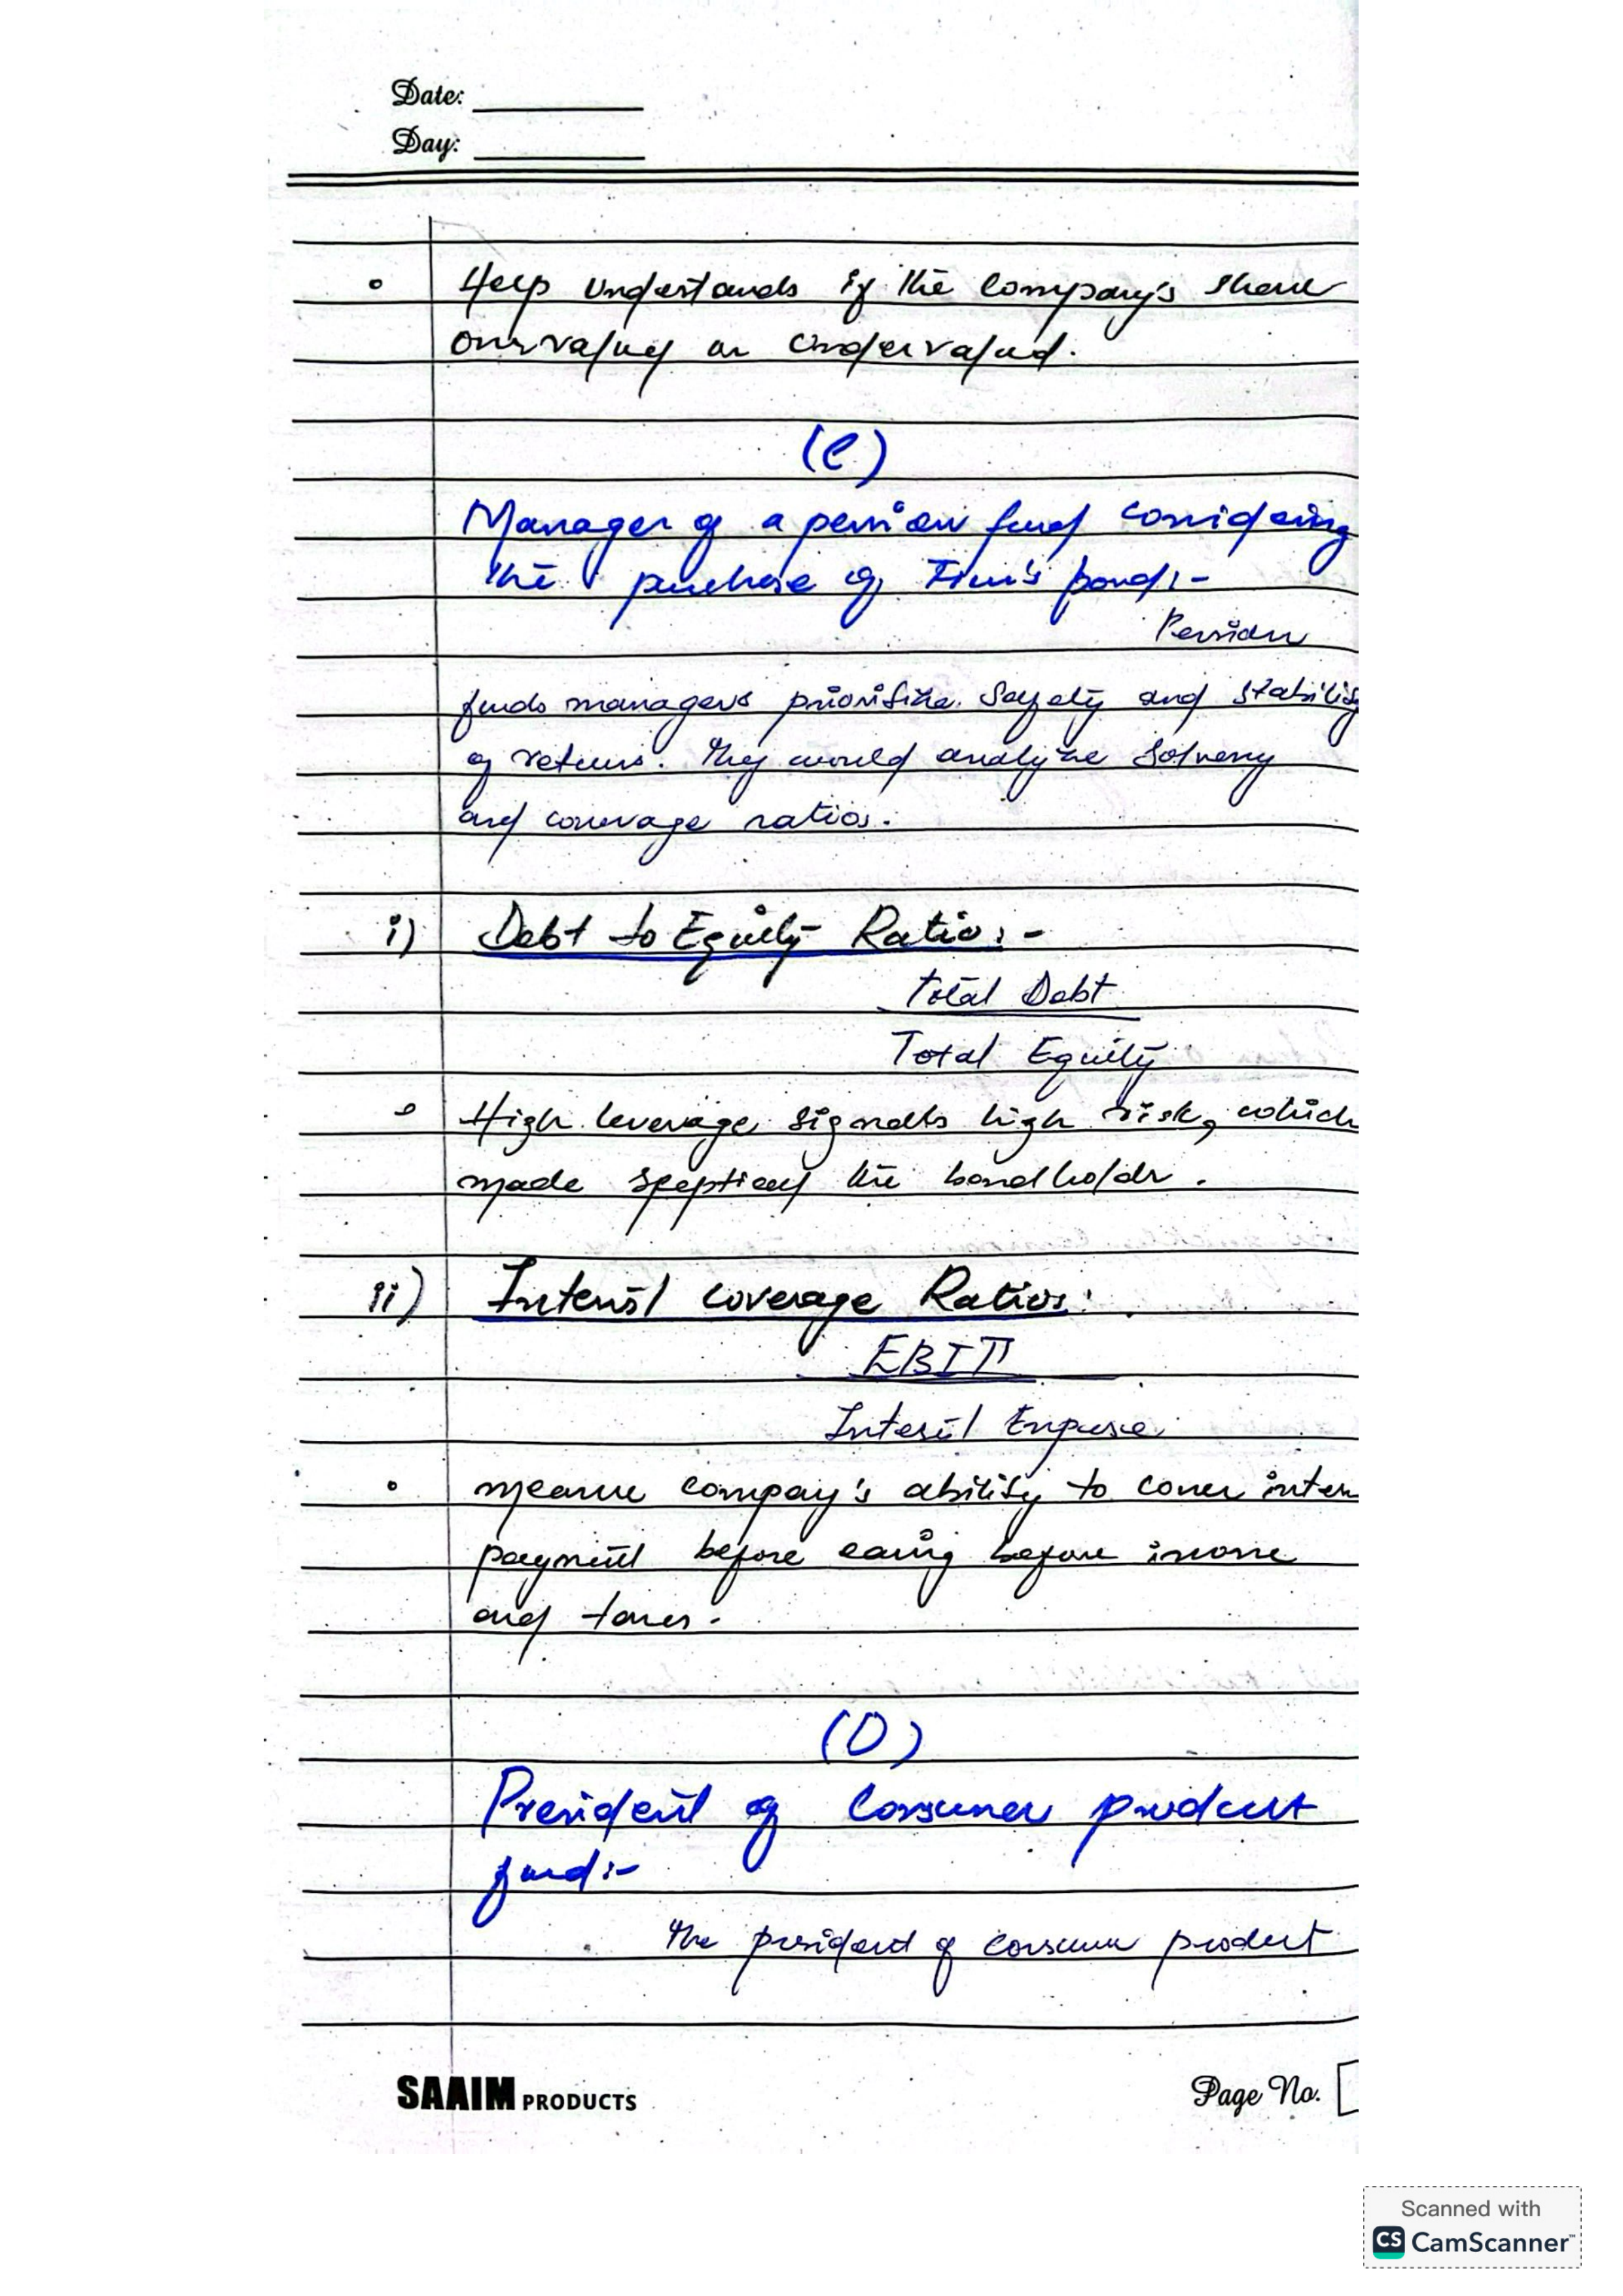 Date:
Day:
Help understands if the Company's share
overvalued or undervalued.
(C)
Manager of a pension fund considering
the purchase of Firm's bond:-
Pension
funds managers prioritize Safety and stability
of returns. They would analyze Solvency
and coverage ratios.
i) Debt to Equity Ratio:-
Total Debt
Total Equity
High leverage signals high risk, which
made the bondholder.
ii) Interest Coverage Ratios:
EBIT
Interest Expense
measure company's ability to cover inter
payment before earing before income
and taxes.
(D)
President of Consumer product
fund:-
The president of consumer product
SAAIM PRODUCTS
Page No.
Scanned with
CS CamScanner